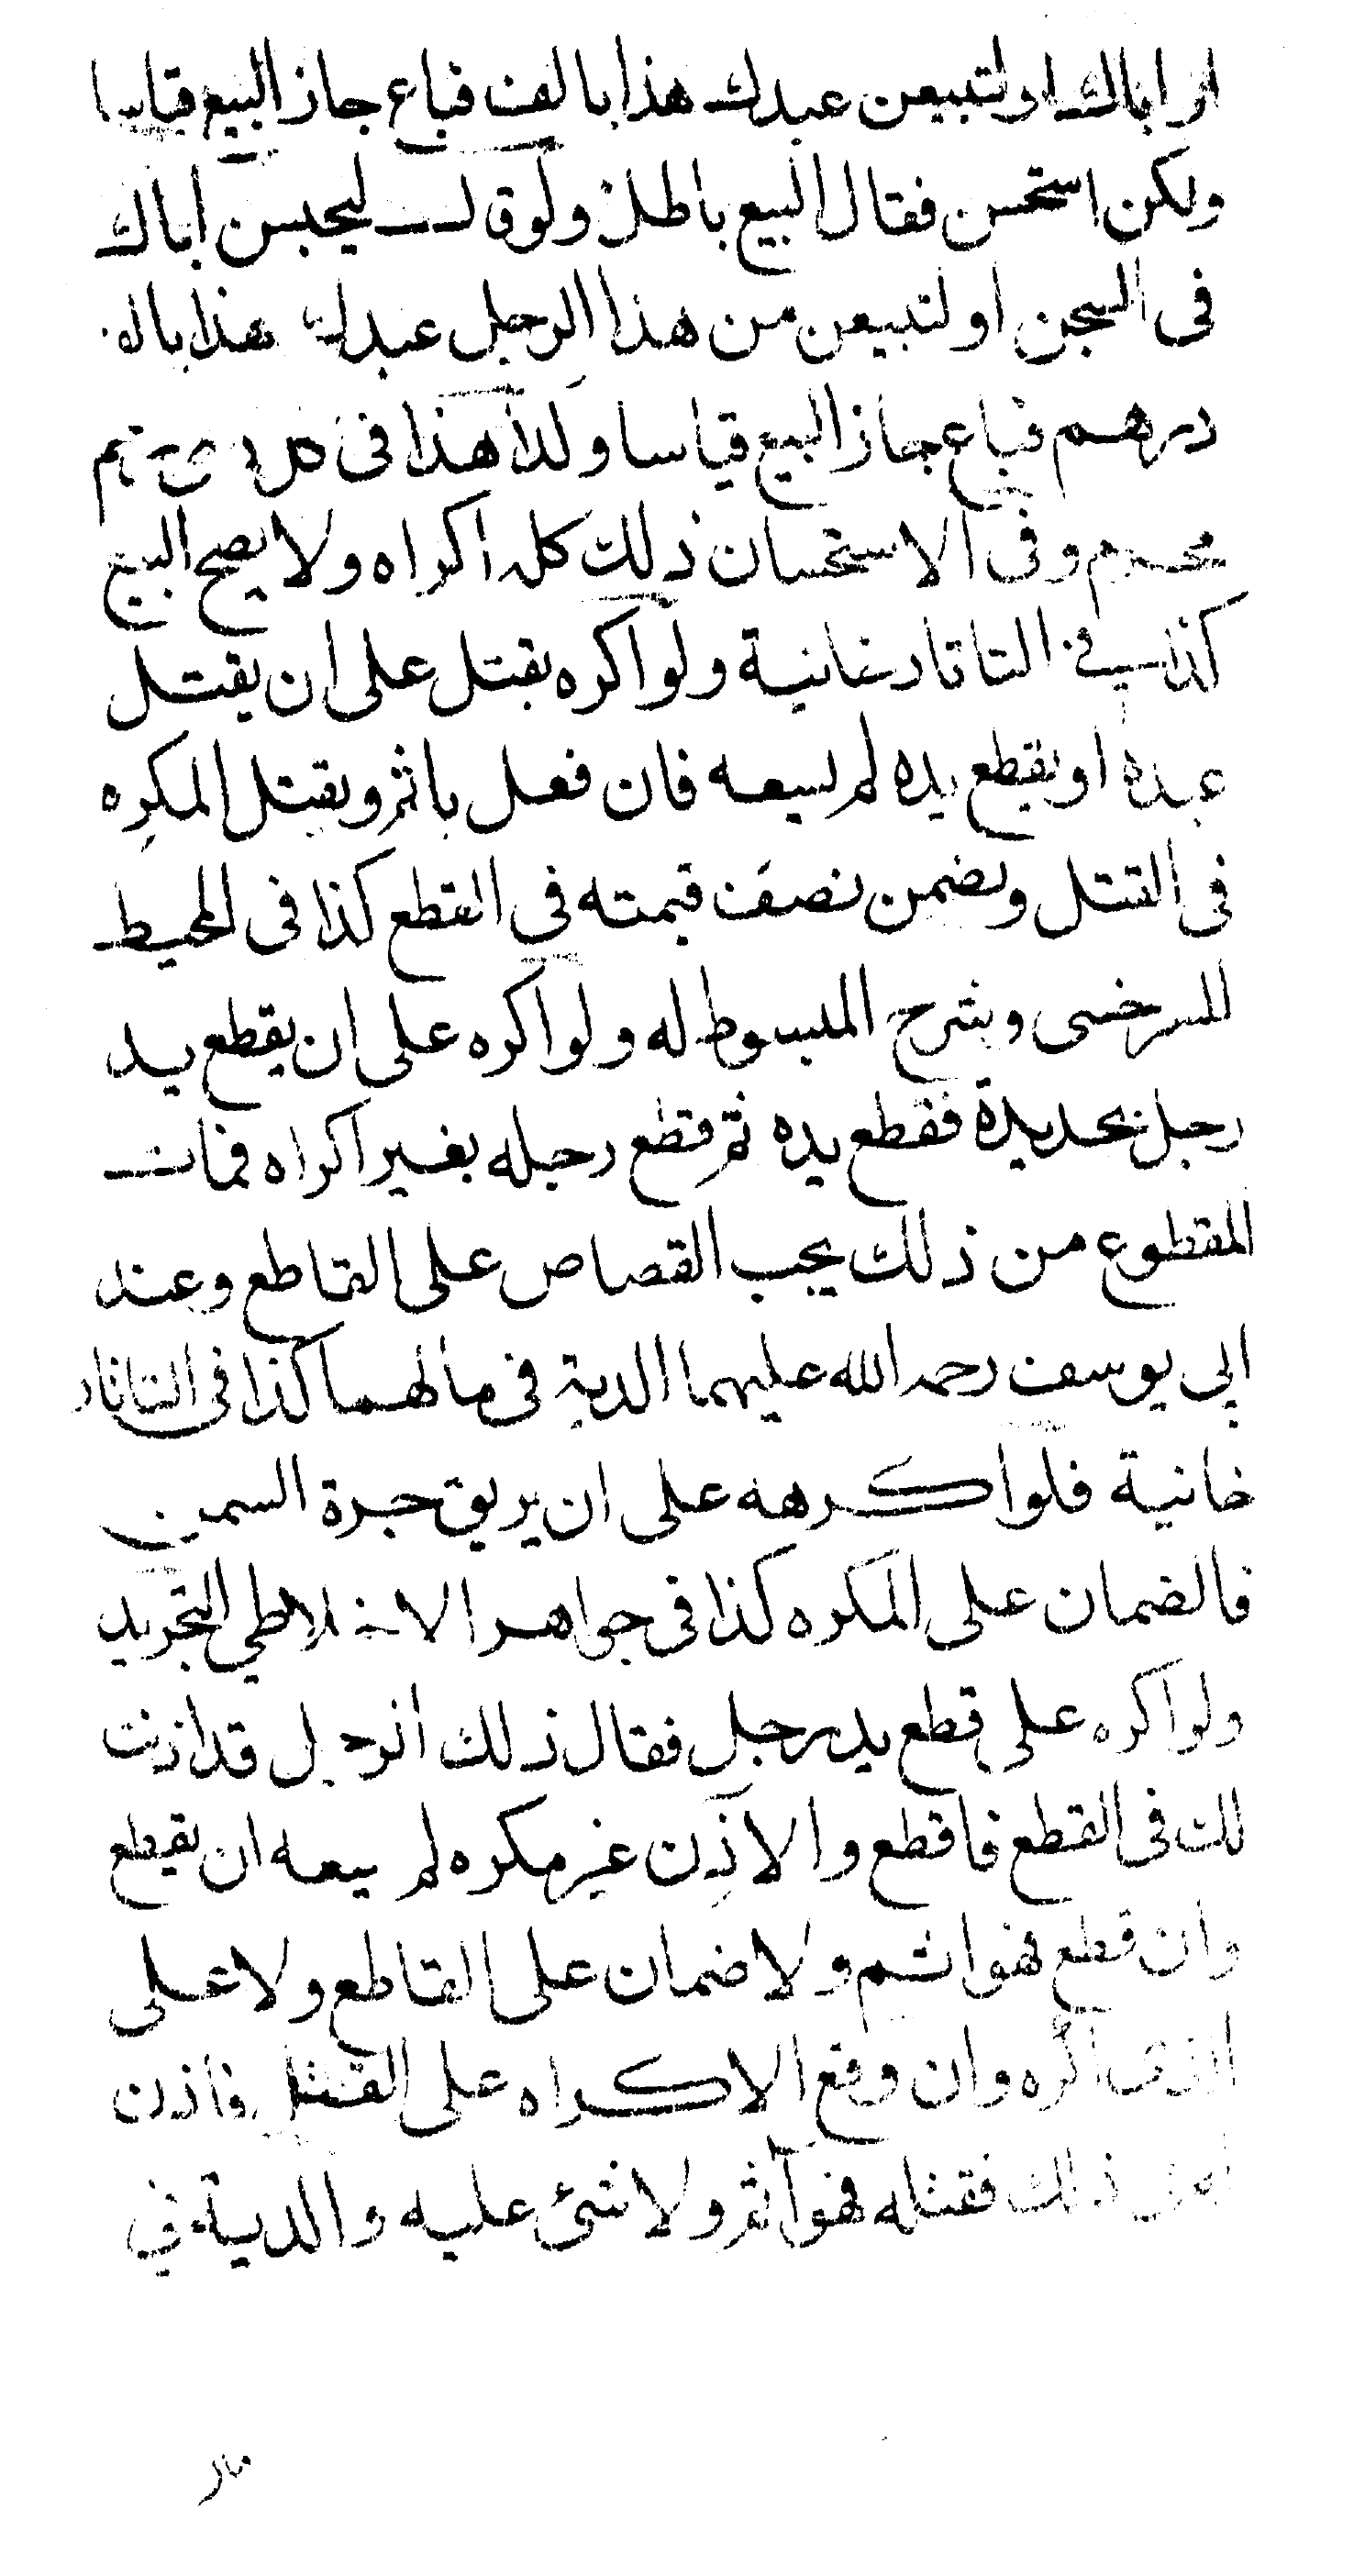 او اباك او لتبيعن عبدك هذا بالف فباع جاز البيع قياسا
ولكن استحسن فقال البيع باطل ولو قال ليحبسن اباك
فى السجن او لتبيعن من هذا الرجل عبدك هذا بالف
درهم فباع جاز البيع قياسا وكذا هذا فى كل ذى رحم
محرم وفى الاستحسان ذلك كله اكراه ولا يصح البيع
كذا فى التاتارخانية ولو اكره بقتل على ان يقتل
عبده او يقطع يده لم يسعه فان فعل ياثم ويقتل المكره
فى القتل ويضمن نصف قيمته فى القطع كذا فى المحيط
للسرخسى وشرح المبسوط له ولو اكره على ان يقطع يد
رجل بحديدة فقطع يده ثم قطع رجله بغير اكراه فمات
المقطوع من ذلك يجب القصاص على القاطع وعند
ابي يوسف رحمه الله عليهما الدية فى مالهما كذا فى التاتار
خانية فلو اكرهه على ان يريق جرة السمن
فالضمان على المكره كذا فى جواهر الاخلاطي التجريد
ولو اكره على قطع يد رجل فقال ذلك الرجل قد اذنت
لك فى القطع فاقطع والاذن غير مكره لم يسعه ان يقطع
وان قطع فهو اثم ولا ضمان على القاطع ولا على
الذى اكره وان وقع الاكراه على القتل فاذن
ذلك فقتله فهو آثم ولا شئ عليه والدية في
مال